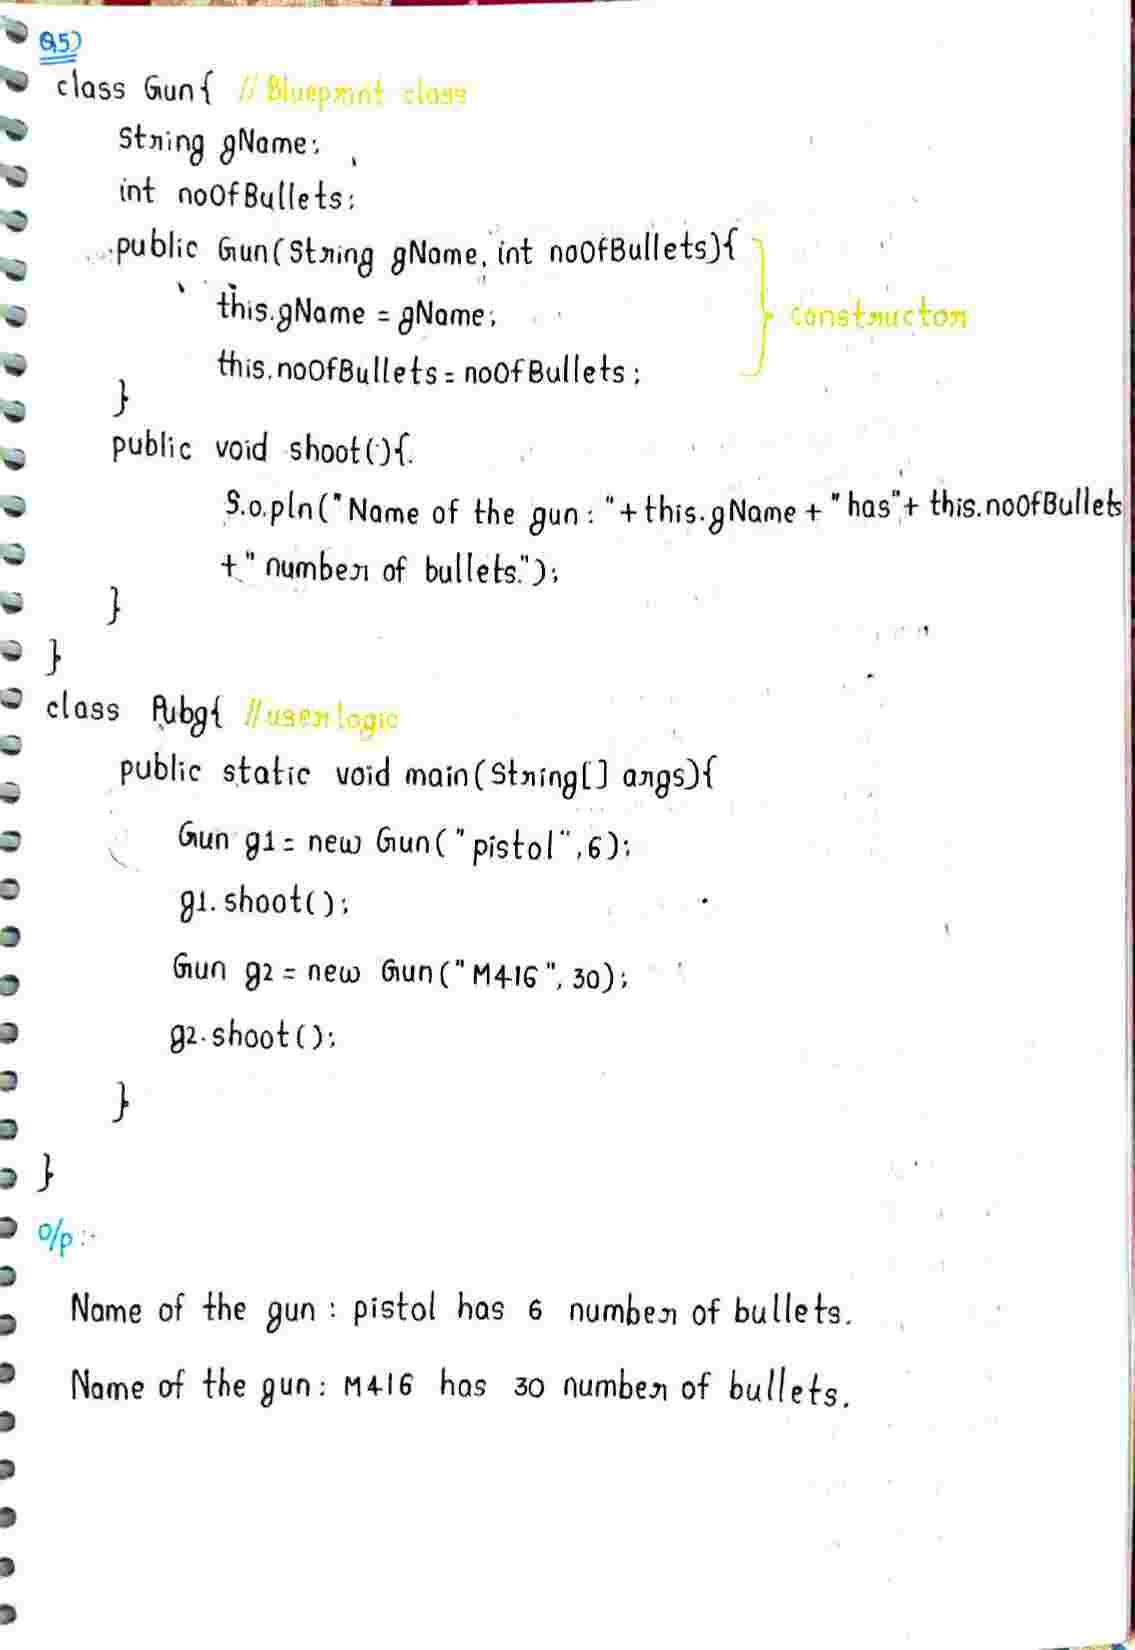 Q5)
class Gun{ // Blueprint class
String gName;
int noOfBullets;
public Gun(String gName, int noOfBullets){
this.gName = gName;
constructor
this.noOfBullets = noOfBullets;
}
public void shoot(){
S.o.pln("Name of the gun : "+ this.gName + "has"+ this.noOfBullets
+" number of bullets.");
}
}
class Pubg{ //user logic
public static void main(String[] args){
Gun g1 = new Gun("pistol",6);
g1.shoot();
Gun g2 = new Gun("M416", 30);
g2.shoot();
}
}
o/p :-
Name of the gun : pistol has 6 number of bullets.
Name of the gun : M416 has 30 number of bullets.